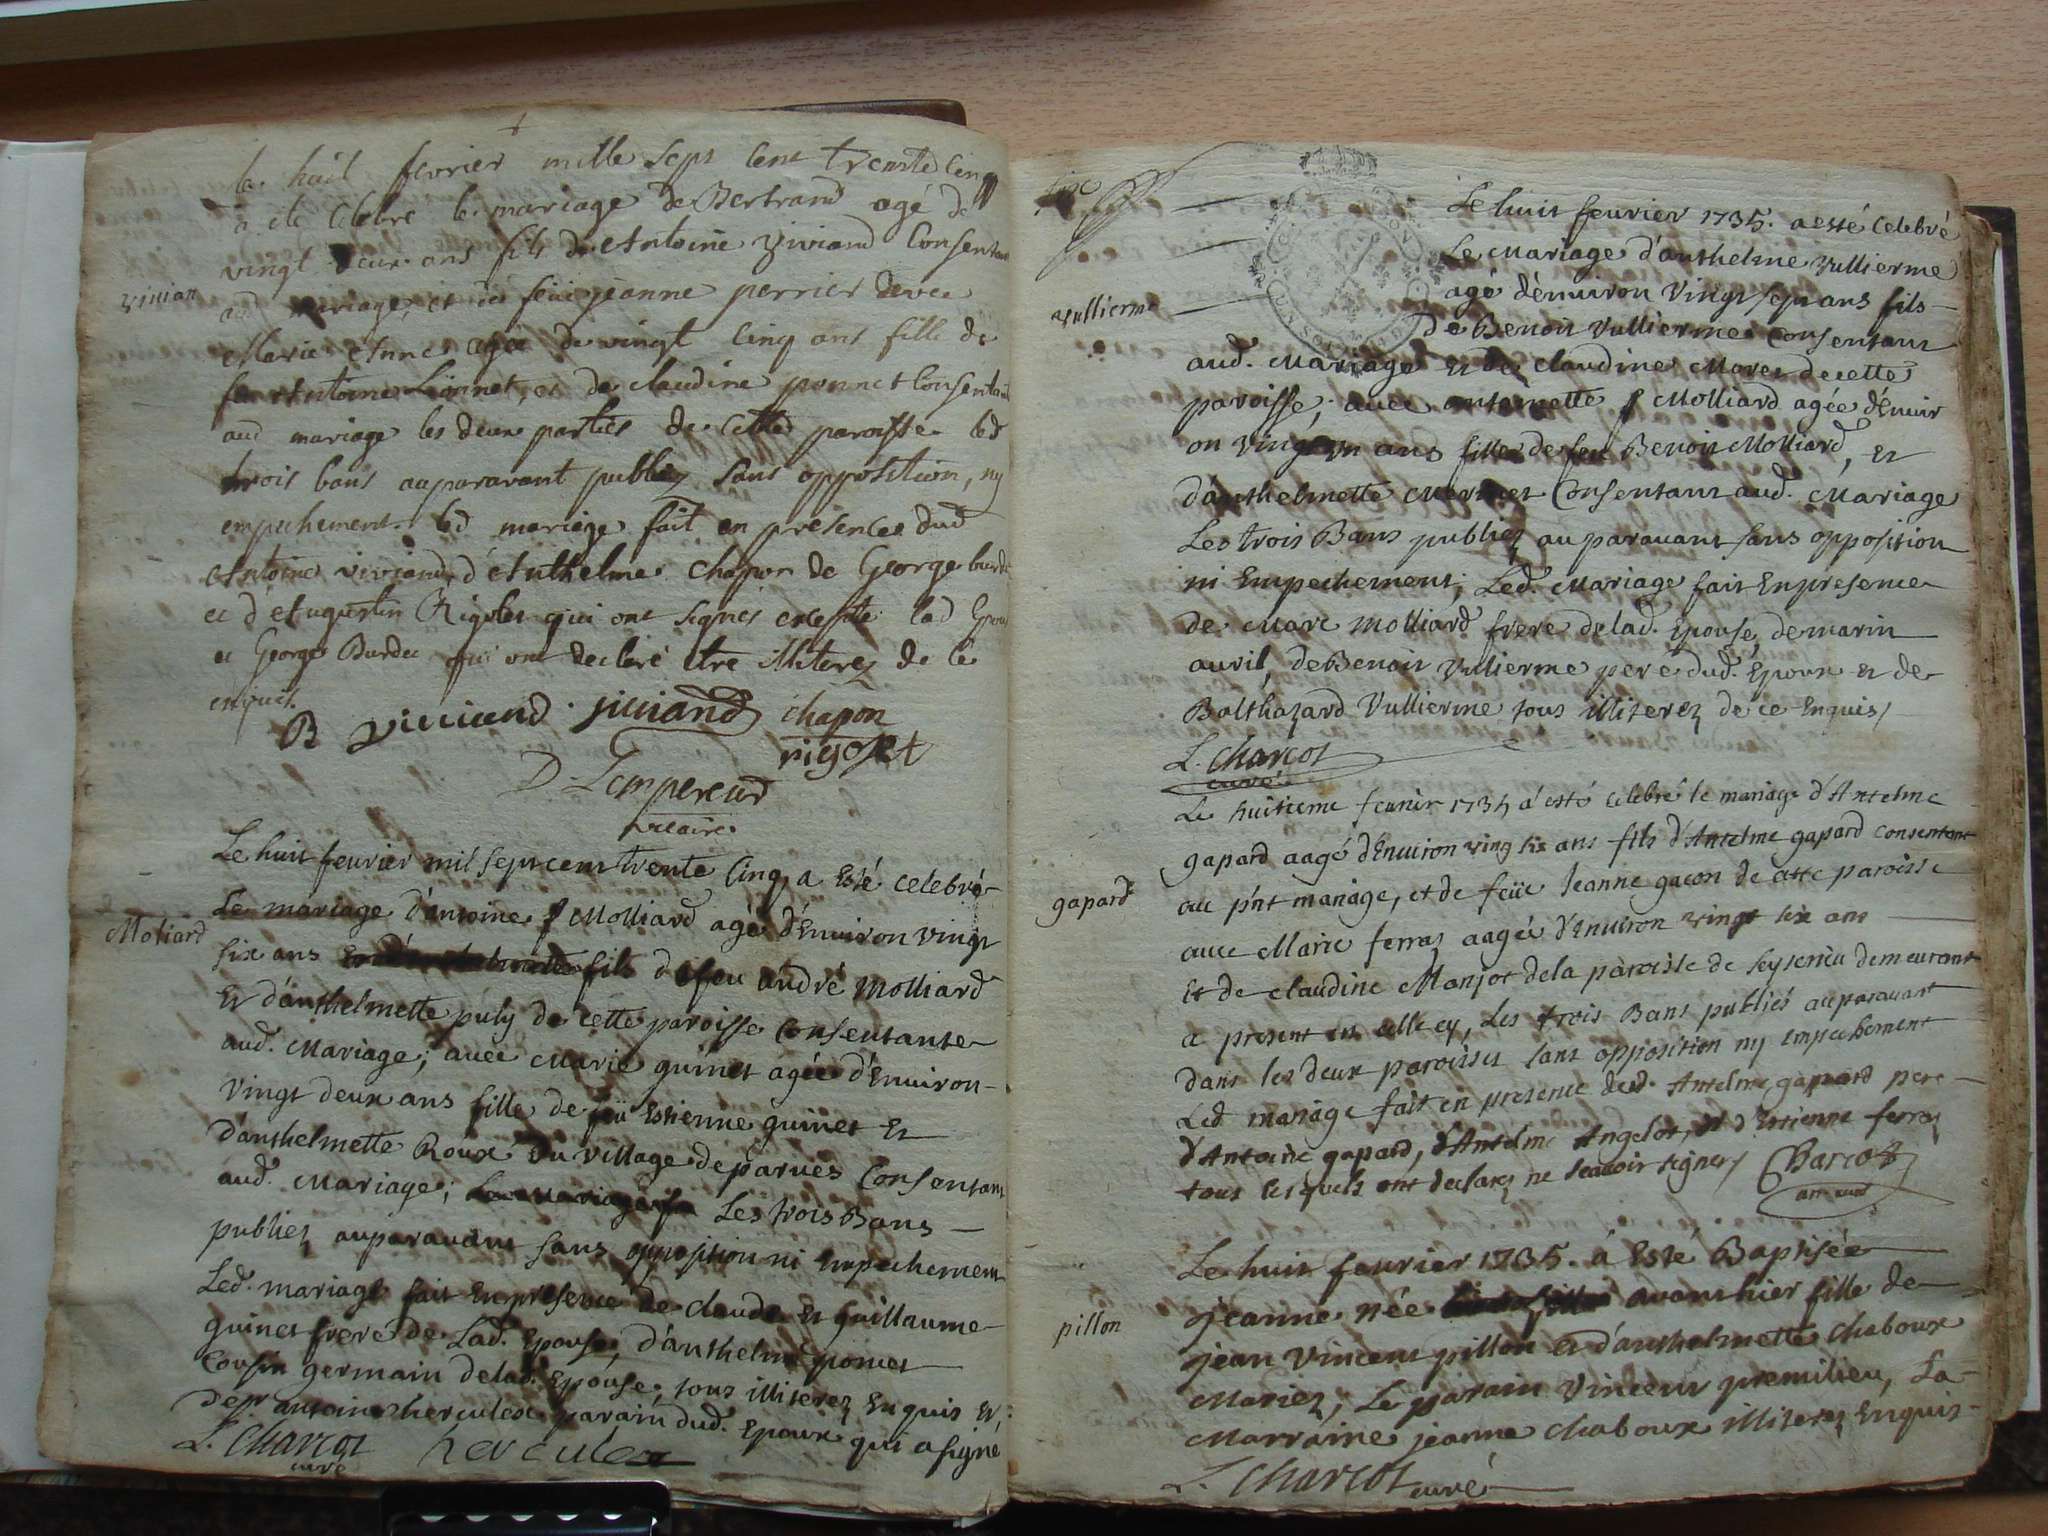 le huit fevrier mille sept cent trente cinq
a été celebré le mariage de Bertrand agé de
vingt deux ans fils de Antoine viviand Consentant
vivian
au mariage, et de feüe jeanne perrier avec
Marie Anne agée de vingt cinq ans fille de
feu Antoine Lionnet, et de claudine ponnet Consentant
aud mariage les deux parties de cette paroisse led
trois bans auparavant publiez sans opposition, ny
empechement. led mariage fait en presence dud
Antoine viviand, d'Anthelme Chapon de George burdet
et d'Augustin Rigolet qui ont signés excepté lad Epouse
et George Burdet qui ont declaré être illiterez de ce
enquis.
B viviand viviand chapon
rigolet
D. Lempereur
vicaire
Le huit feurier mil sept cent trente Cinq a Esté celebré
Le mariage d'antoine f Molliard agé d'Enuiron vingt
Moliard
six ans fils de feu andré Molliard
Et d'anthelmette puly de cette paroisse Consentante
aud. Mariage; auec Marie guinet agée d'Enuiron
vingt deux ans fille de feü Estienne guinet Et
d'anthelmette Roux du village de parues Consentant
aud. Mariage; Les trois Bans
publiez auparauant sans opposition ni Empechement
Led. mariage fait En presence de claude Et guillaume
guinet frere de Lad. Epouse, d'anthelme ponnet
Cousin germain delad. Epouse, tous illiterez Enquis Et
de sr antoine hercules parain dud. Epoux qui a signé
L. Charcot herculex
curé
Le huit feurier 1735. a esté Celebré
Le Mariage d'anthelme vullierme
agé d'enuiron vingt sept ans fils
vullierme
de Benoit vullierme Consentant
aud. Mariage et de claudine Moret de cette
paroisse; auec antoinette f Molliard agée d'énuir
on vingt vn ans fille de feu Benoit Molliard, et
d'anthelmette Mermet Consentant aud. Mariage
Les trois Bans publiez auparauant sans opposition
ni Empechement; Led. Mariage fait En presence
de Marc Molliard frere de lad. Epouse, de marin
auril, de Benoit Vullierme pere dud. Epoux et de
Balthazard Vullierme tous illiterez de ce Enquis/
L. Charcot
curé
Le huitieme feurier 1735 a esté celebré le mariage d'Antelme
gapard aagé d'Enuiron ving six ans fils d'Antelme gapard consentant
gapard
au p'nt mariage, et de feüe Jeanne gacon de cette paroisse
auec Marie ferraz aagée d'Enuiron vingt six ans
Et de claudine Manjot de la paroisse de seyserieu demeurant
a present en celle cy, Les trois Bans publiés auparauant
dans les deux paroisses sans opposition ny empechement
Led mariage fait en presence dud. Antelme gapard pere
d'Antoine gapard, d'Antelme Angelot, et d'Estienne ferraz
tous lesquels ont declarez ne scauoir signer/ Charcot
Le huit feurier 1735. á Esté Baptisée
jeanne née auant hier fille de
pillon
jean vincent pillon et d'anthelmette chaboux
Mariez, Le parain vincent premilieu, La
Marraine jeanne chaboux illiterez Enquis
L. Charcot curé